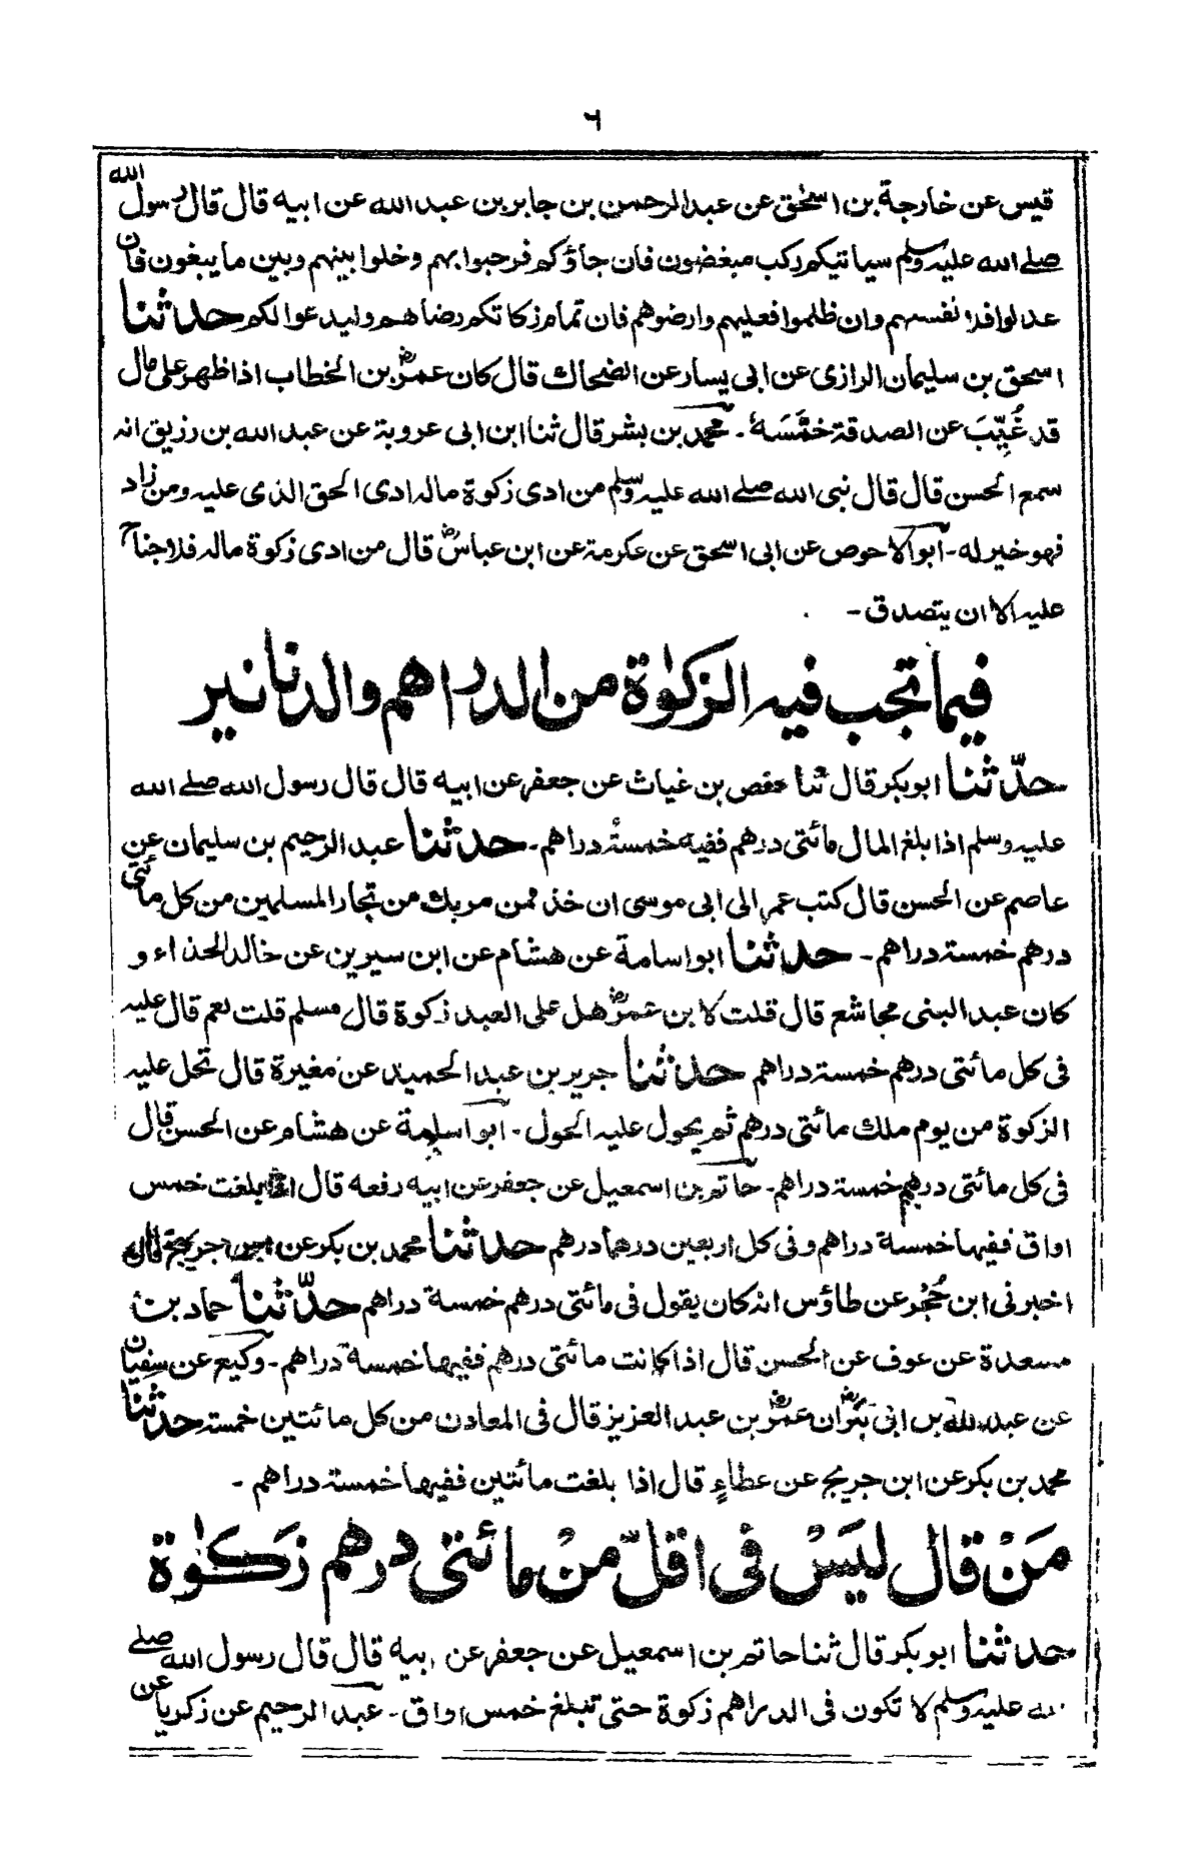 ٦
قيس عن خارجة بن اسحٰق عن عبدالرحمن بن جابر بن عبد الله عن ابيه قال قال رسول الله
صلے الله عليه وسلم سياتيكم ركب مبغضون فان جاؤكم فرحبوا بهم وخلوا بينهم وبين ما يبغون فان
عدلوا فلانفسهم وان ظلموا فعليهم وارضوهم فان تمام زكاتكم رضاهم وليدعوا لكم حدثنا
اسحق بن سليمان الرازى عن ابى يسار عن الضحاك قال كان عمرؓ بن الخطاب اذا ظهر على مال
قد غُيِّبَ عن الصدقة خمَّسَهٗ ۔ محمد بن بشر قال ثنا ابن ابى عروبة عن عبد الله بن رزيق انه
سمع الحسن قال قال نبى الله صلے الله عليه وسلم من ادى زكوة ماله ادى الحق الذى عليه ومن زاد
فهو خير له ۔ ابو الاحوص عن ابى اسحق عن عكرمة عن ابن عباسؓ قال من ادى زكوة ماله فلاجناح
عليه الا ان يتصدق ۔
فيما تجب فيه الزكوٰة من الدراهم والدنانير
حدّثنا ابو بكر قال ثنا حفص بن غياث عن جعفر عن ابيه قال قال رسول الله صلے الله
عليه وسلم اذا بلغ المال مائتى درهم ففيه خمسةُ دراهم ۔ حدثنا عبد الرحيم بن سليمان عن
عاصم عن الحسن قال كتب عمر الى ابى موسى ان خذ ممن مر بك من تجار المسلمين من كل مائتى
درهم خمسة دراهم ۔ حدثنا ابو اسامة عن هشام عن ابن سيرين عن خالد الحذاء و
كان عبد البنى مجاشع قال قلت لابن عمرؓ هل على العبد زكوة قال مسلم قلت نعم قال عليه
فى كل مائتى درهم خمسة دراهم حدثنا جرير بن عبد الحميد عن مغيرة قال تحل عليه
الزكوة من يوم ملك مائتى درهم ثم يحول عليه الحول ۔ ابو اسلمة عن هشام عن الحسن قال
فى كل مائتى درهم خمسة دراهم ۔ حاتم بن اسمعيل عن جعفر عن ابيه رفعه قال اذا بلغت خمس
اواق ففيها خمسة دراهم وفى كل اربعين درهما درهم حدثنا محمد بن بكر عن ابن جريج قال
اخبرنى ابن حُجُر عن طاؤس انه كان يقول فى مائتى درهم خمسة دراهم حدّثنا حماد بن
مسعدة عن عوف عن الحسن قال اذا كانت مائتى درهم ففيها خمسة دراهم ۔ وكيع عن سفيان
عن عبد الله بن ابى بكر ان عمرؓ بن عبد العزيز قال فى المعادن من كل مائتين خمسة حدثنا
محمد بن بكر عن ابن جريج عن عطاءٍ قال اذا بلغت مائتين ففيها خمسة دراهم ۔
مَنْ قال ليَسْ فى اقلّ منْ مائتى درهم زَكوٰة
حدثنا ابو بكر قال ثنا حاتم بن اسمعيل عن جعفر عن ابيه قال قال رسول الله صلے
الله عليه وسلم لا تكون فى الدراهم زكوة حتى تبلغ خمس اواق ۔ عبد الرحيم عن زكريا عن